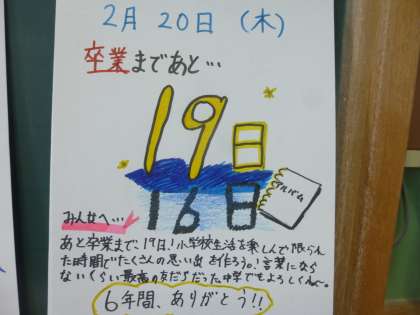 2月 20日 (木)
卒業まであと…
19日
16日
アルバム
みんなへ…
あと卒業まで、19日!小学校生活を楽しんで限られ
た時間でたくさんの思い出を作ろう。!言葉になら
ないくらい最高の友だちだった中学でもよろしくねー。
6年間、ありがとう!!